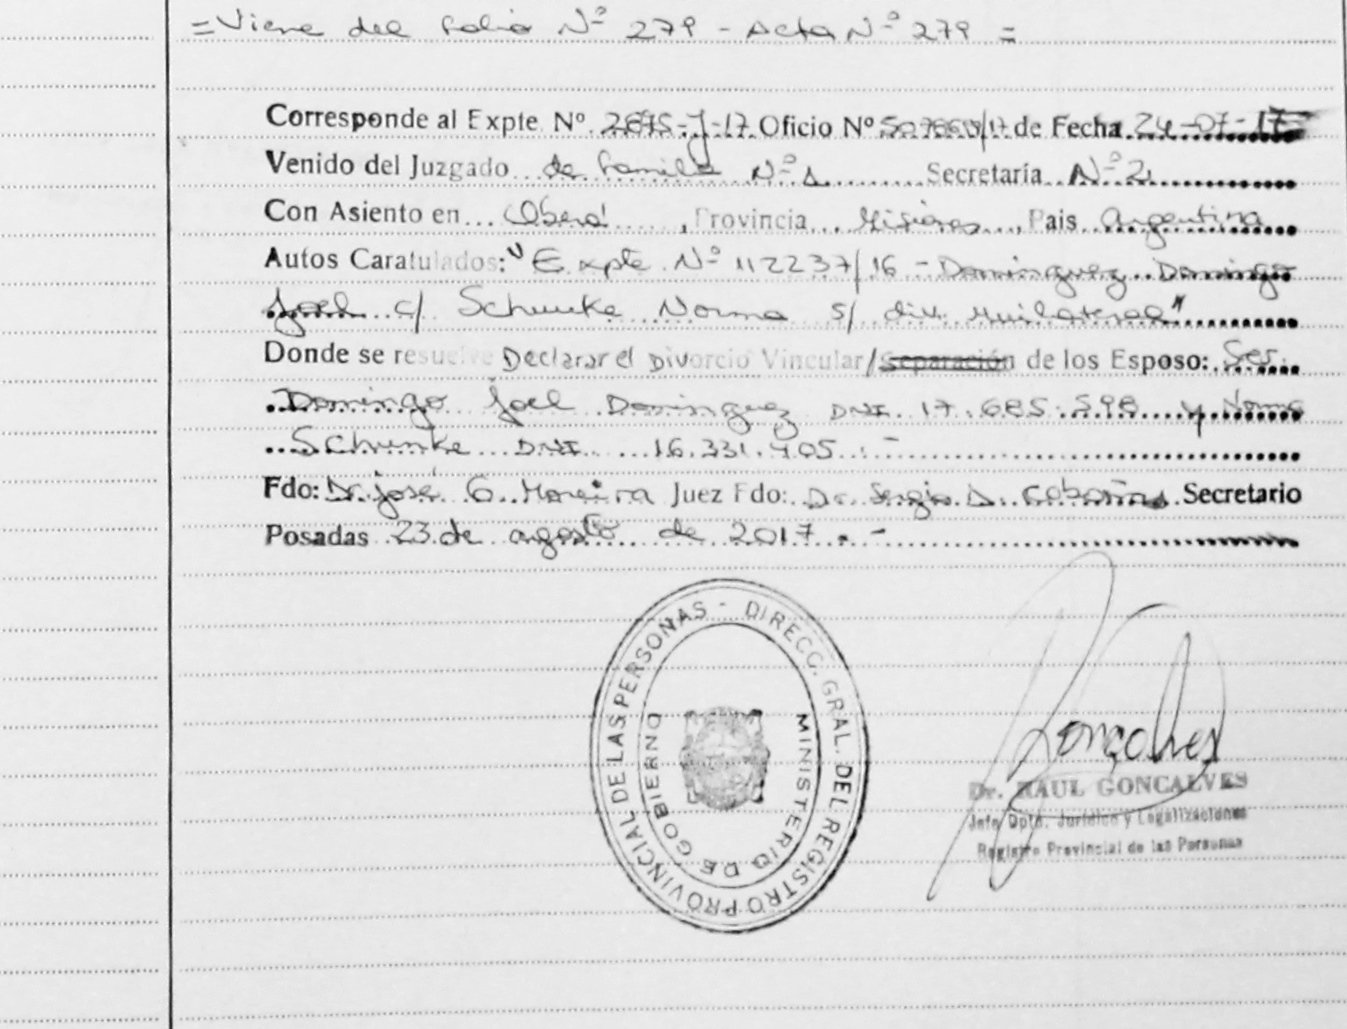 = Viene del folio Nº 279 - Acta Nº 279 =
Corresponde al Expte Nº 2675-J-17 Oficio Nº /17 de Fecha 24-07-17
Venido del Juzgado de Familia Nº 1 Secretaría Nº 2
Con Asiento en Oberá, Provincia Misiones, Pais Argentina
Autos Caratulados: "Expte Nº 112237/16 - Dominguez Domingo
Joel c/ Schunke Norma s/ div. Unilateral"
Donde se resuelve Declarar el Divorcio Vincular/Separación de los Esposo: Sres.
Domingo Joel Dominguez DNI 17.685.598 y Norma
Schunke DNI 16.331.405.-
Fdo: Dr. José G. Moreira Juez Fdo: Dr. Sergio D. Secretario
Posadas 23 de agosto de 2017.-
DIRECC. GRAL. DEL REGISTRO PROVINCIAL DE LAS PERSONAS -
MINISTERIO DE GOBIERNO
Gonçalves
Dr. RAUL GONCALVES
Jefe Dpto. Jurídico y Legalizaciones
Registro Provincial de las Personas